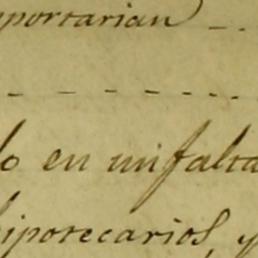 mportarian
lo en mi falta
hipotecarios, y